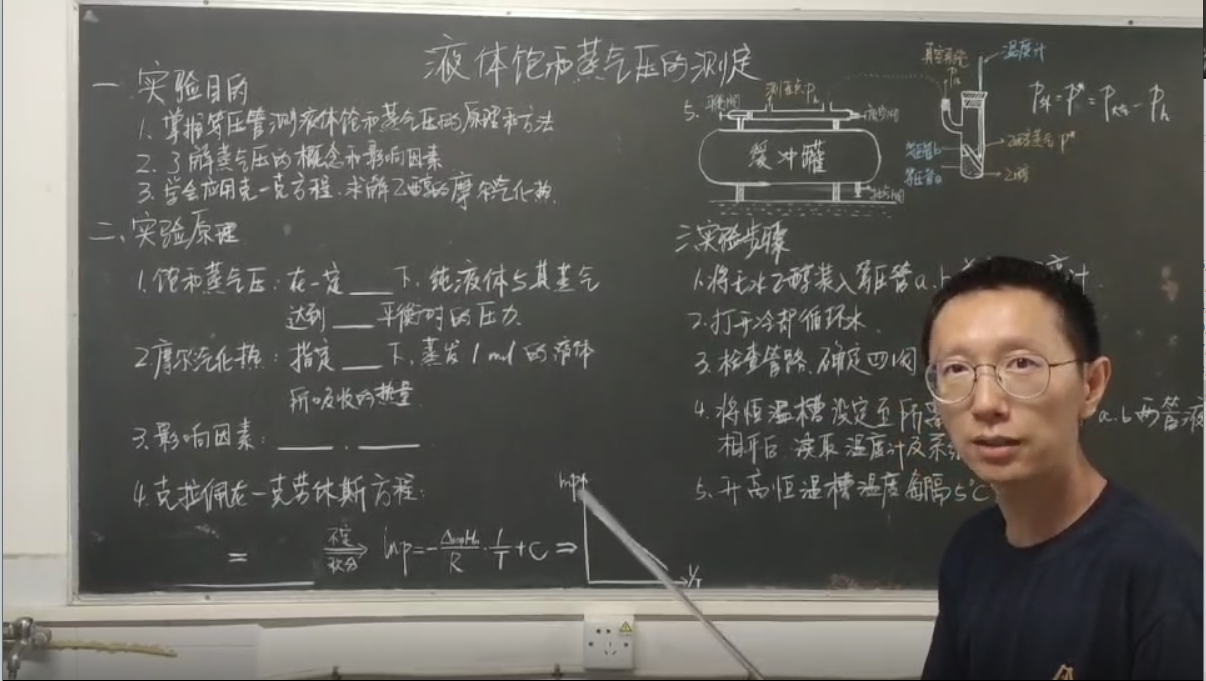 液体饱和蒸气压的测定
一、实验目的
1. 掌握等压管测液体饱和蒸气压的原理和方法
2. 了解蒸气压的概念和影响因素
3. 学会应用克-克方程,求解乙醇的摩尔汽化热.
二、实验原理
1. 饱和蒸气压: 在一定___下, 纯液体与其蒸气
达到___平衡时的压力.
2. 摩尔汽化热: 指定___下, 蒸发1mol的液体
所吸收的热量.
3. 影响因素: ____ . ____
4. 克拉佩龙-克劳休斯方程:
= 不定积分 ⇒ lnp=-ΔvapHm/R·1/T+C ⇒
lnp
1/T
5.
平衡阀
测压点Ph
缓冲罐
真空系统
温度计
等压管b
等压管a
乙醇蒸气 P*
乙醇
P外=P*=P大气-Ph
三、实验步骤
1. 将无水乙醇装入等压管a.b
计.
2. 打开冷却循环水.
3. 检查管路, 确定四阀
4. 将恒温槽设定至所
a.b两管液
相平后, 读取温度计及系
5. 升高恒温槽温度每隔5℃